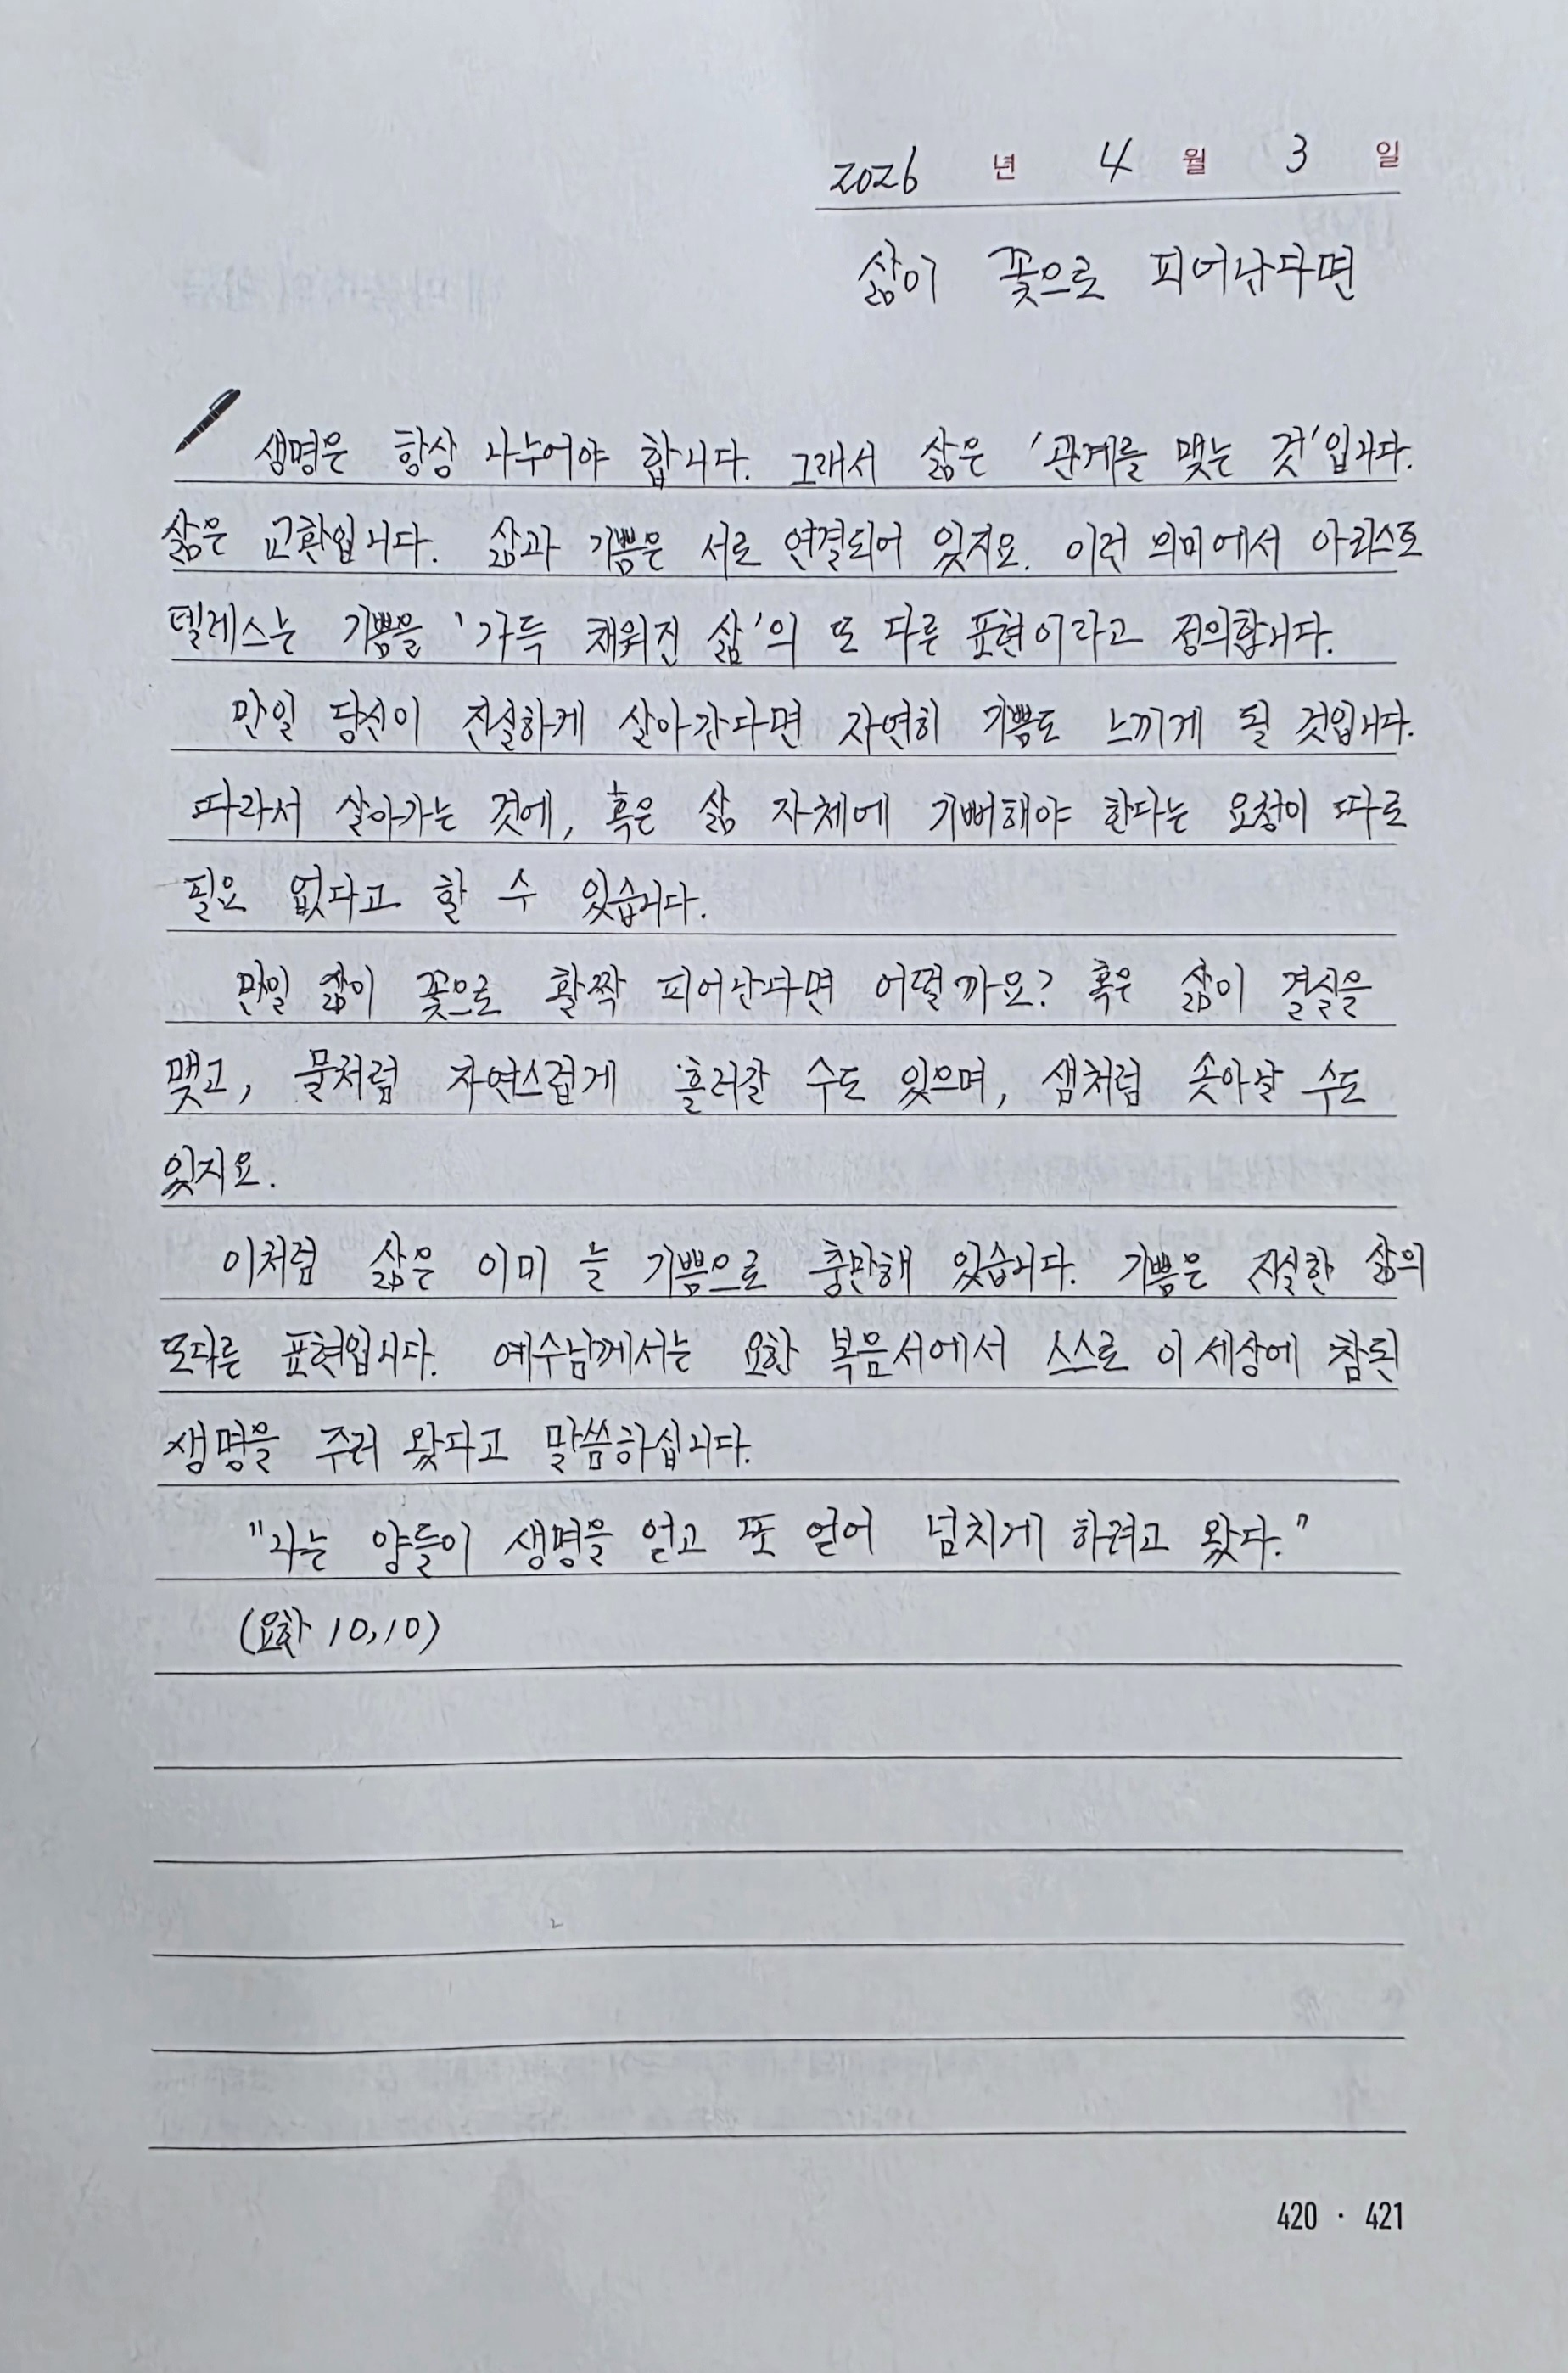 2026 년 4 월 3 일
삶이 꽃으로 피어난다면
생명은 항상 나누어야 합니다. 그래서 삶은 '관계를 맺는 것'입니다.
삶은 교환입니다. 삶과 기쁨은 서로 연결되어 있지요. 이런 의미에서 아리스토
텔레스는 기쁨을 '가득 채워진 삶'의 또 다른 표현이라고 정의합니다.
만일 당신이 진실하게 살아간다면 자연히 기쁨도 느끼게 될 것입니다.
따라서 살아가는 것에, 혹은 삶 자체에 기뻐해야 한다는 요청이 따로
필요 없다고 할 수 있습니다.
만일 삶이 꽃으로 활짝 피어난다면 어떨까요? 혹은 삶이 결실을
맺고, 물처럼 자연스럽게 흘러갈 수도 있으며, 샘처럼 솟아날 수도
있지요.
이처럼 삶은 이미 늘 기쁨으로 충만해 있습니다. 기쁨은 진실한 삶의
또다른 표현입니다. 예수님께서는 요한 복음서에서 스스로 이 세상에 참된
생명을 주러 왔다고 말씀하십니다.
"나는 양들이 생명을 얻고 또 얻어 넘치게 하려고 왔다."
(요한 10,10)
420 · 421